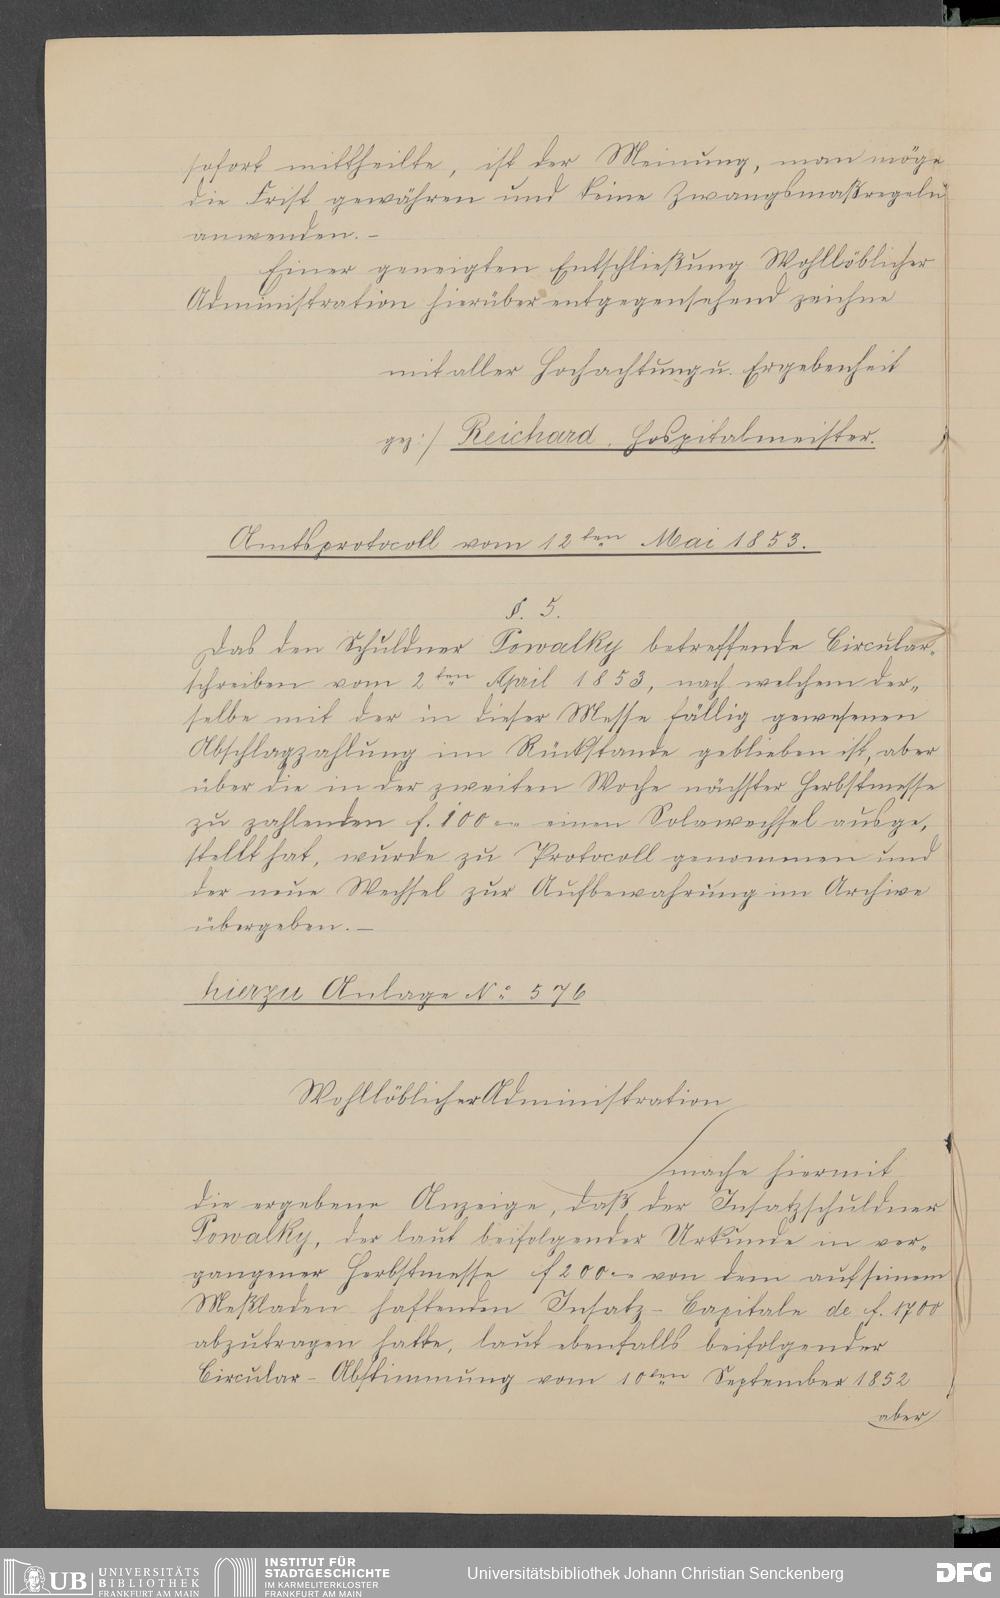 sofort mittheilte, ist der Meinung, man möge
die Frist gewähren und keine Zwangsmaßregeln
anwenden. –
Einer geneigten Entschließung Wohllöblicher
Administration hierüber entgegensehend zeichne
mit aller Hochachtung u. Ergebenheit
gez:/ Reichard. Hospitalmeister.
Amtsprotocoll vom 12ten Mai 1853.
§. 5.
Das den Schuldner Powalky betreffende Circular„
schreiben vom 2ten April 1853, nach welchem der„
selbe mit der in dieser Messe fällig gewesenen
Abschlagzahlung im Rückstande geblieben ist, aber
über die in der zweiten Woche nächster Herbstmesse
zu zahlenden f. 100 – einen Solawechsel ausge„
stellt hat, wurde zu Protocoll genommen und
der neue Wechsel zur Aufbewahrung im Archive
übergeben. –
hierzu Anlage No 576
Wohllöblicher Administration
mache hiermit
die ergebene Anzeige, daß der Insatzschuldner
Powalky, der laut beifolgender Urkunde in ver„
gangener Herbstmesse f 200 – von dem auf seinem
Meßladen haftenden Insatz-Capitale de f. 1700
abzutragen hatte, laut ebenfalls beifolgender
Circular-Abstimmung vom 10ten September 1852
aber
UB UNIVERSITÄTS
BIBLIOTHEK
FRANKFURT AM MAIN
INSTITUT FÜR
STADTGESCHICHTE
IM KARMELITERKLOSTER
FRANKFURT AM MAIN
Universitätsbibliothek Johann Christian Senckenberg
DFG